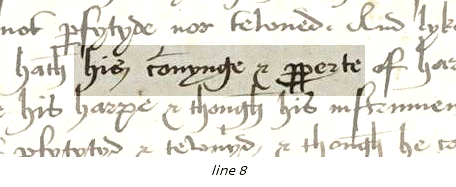 not pfytyde nor teloned. And lyke
hath his conynge & pperte of har
e his harpe & though his instrumen
pfytyd & telonyd, & though he co
line 8